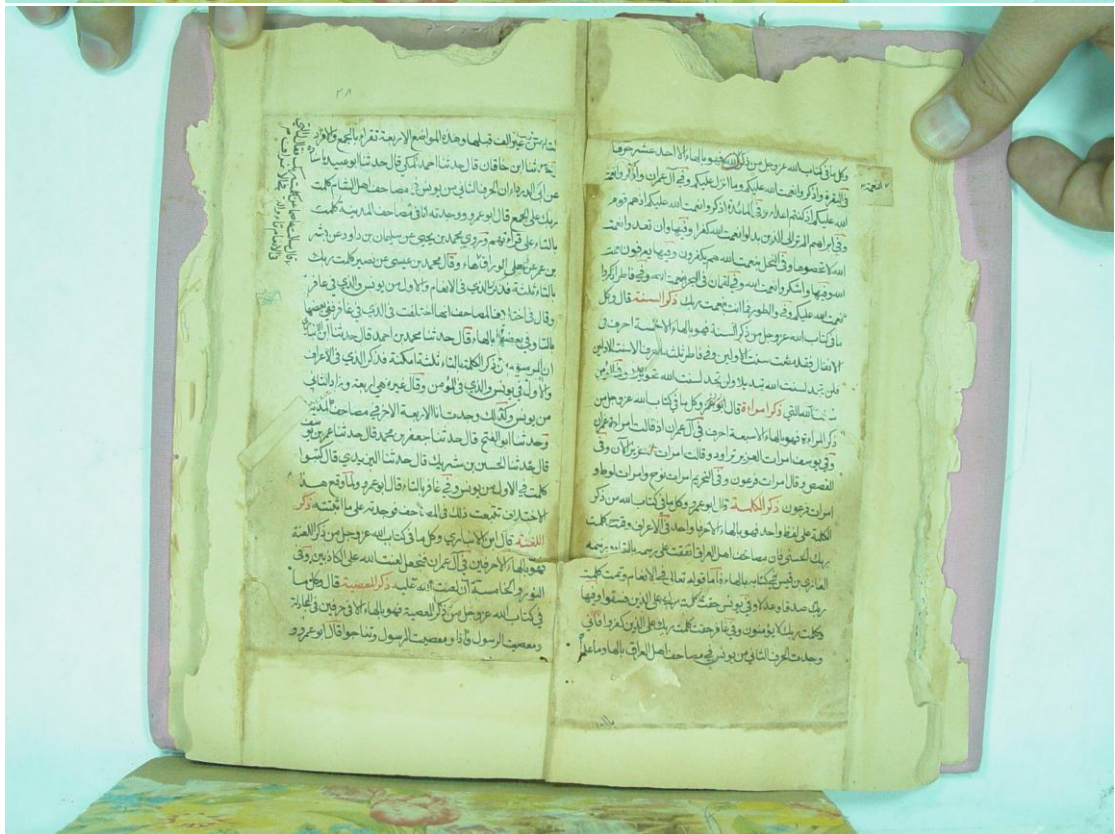 وكل ما في كتاب الله عز وجل من ذكر الله فهو بالهاء الا احد عشر حرفا
في البقرة واذكروا نعمت الله عليكم وما انزل عليكم وفي آل عمران واذكروا نعمت
الله عليكم اذ كنتم اعداء وفي المائدة اذكروا نعمت الله عليكم اذ هم قوم
وفي ابراهيم الم تر الى الذين بدلوا نعمت الله كفرا وفيها وان تعدوا نعمت
الله لا تحصوها وفي النحل بنعمت الله هم يكفرون وفيها يعرفون نعمت
الله وفيها واشكروا نعمت الله وفي لقمان في البحر بنعمت الله وفي فاطر اذكروا
نعمت الله عليكم وفي والطور فما انت بنعمت ربك ذكر السنة قال وكل
ما في كتاب الله عز وجل من ذكر السنة فهو بالهاء الا خمسة احرف في
الانفال فقد مضت سنت الاولين وفي فاطر ثلثة احرف الا سنت الاولين
فلن تجد لسنت الله تبديلا ولن تجد لسنت الله تحويلا وفي المؤمن
سنت الله التي ذكر امراءة قال ابو عمرو وكل ما في كتاب الله عز وجل من
ذكر المراءة فهو بالهاء الا سبعة احرف في آل عمران اذ قالت امراءة عمران
وفي يوسف امرات العزيز تراود وقالت امرات العزيز الآن وفي
القصص وقال امرات فرعون وفي التحريم امرات نوح وامرات لوط و
امرات فرعون ذكر الكلمة قال ابو عمرو وكل ما في كتاب الله من ذكر
الكلمة على لفظ واحد فهو بالهاء الا حرفا واحد في الاعراف وتمت كلمت
ربك الحسنى فان مصاحف اهل العراق اتفقت على رسمه بالتاء ورسمه
الغازي بن قيس في كتابه بالهاء فاما قوله تعالى في الانعام وتمت كلمت
ربك صدقا وعدلا وفي يونس حقت كلمت ربك على الذين فسقوا وفيها
كلمت ربك لا يؤمنون وفي غافر حقت كلمت ربك على الذين كفروا فاني
وجدت الحرف الثاني من يونس في مصاحف اهل العراق بالهاء وما عداه
٢٨
بالتاء من غير الف قبلها وهذه المواضع الاربعة تقراء بالجمع والافراد
ثنا ابن خاقان قال حدثنا احمد المكي قال حدثنا ابو عبيد باسناده
عن ابي الدرداء ان الحرف الثاني من يونس في مصاحف اهل الشام كلمت
ربك على الجمع قال ابو عمرو ووجدته انا في مصاحف المدينة كلمت
بالتاء على قراءتهم وروي محمد بن يحيى عن سليمان بن داود عن بشر
بن عمر عن معلى الوراق بالهاء وقال محمد بن عيسى عن نصير كلمت ربك
بالتاء ثلثة فذكر الذي في الانعام والاول من يونس والذي في غافر
وقال في اختلاف المصاحف انها اختلفت في الذي في غافر ففي بعضها
بالتاء وفي بعضها بالهاء قال حدثنا محمد بن احمد قال حدثنا ابن الانباري
ان المرسوم من ذكر الكلمة بالتاء ثلثة امكنة فذكر الذي في الاعراف
والاول في يونس والذي في المؤمن وقال غيره هي اربعة وزاد الثاني
من يونس وكذلك وجدت انا الاربعة الاحرف في مصاحف المدينة
وحدثنا ابو الفتح قال حدثنا جعفر بن محمد قال حدثنا عمر بن يوسف
قال حدثنا الحسين بن شريك قال حدثنا اليزيدي قال كتبوا
كلمت في الاول من يونس وفي غافر بالتاء قال ابو عمرو ولما وقع هذا
الاختلاف تتبعت ذلك في المصاحف فوجدته على ما اثبتته ذكر
اللعنة قال ابن الانباري وكل ما في كتاب الله عز وجل من ذكر اللعنة
فهو بالهاء الا حرفين في آل عمران فنجعل لعنت الله على الكاذبين وفي
النور والخامسة ان لعنت الله عليه ذكر المعصية قال وكل ما
في كتاب الله عز وجل من ذكر المعصية فهو بالهاء الا في حرفين في المجادلة
ومعصيت الرسول فاذا ومعصيت الرسول وتناجوا قال ابو عمرو و